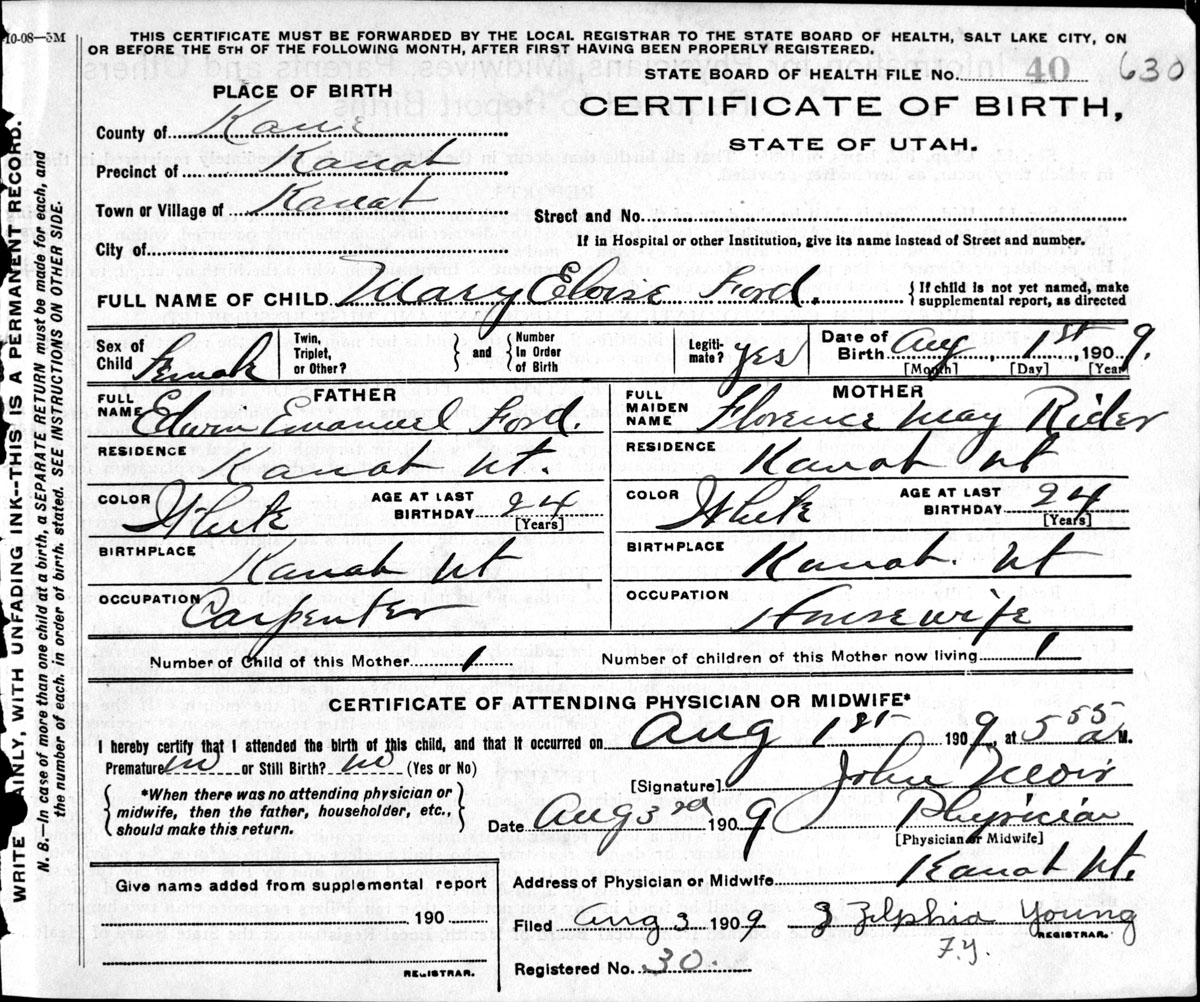 10-08—5M
THIS CERTIFICATE MUST BE FORWARDED BY THE LOCAL REGISTRAR TO THE STATE BOARD OF HEALTH, SALT LAKE CITY, ON
OR BEFORE THE 5TH OF THE FOLLOWING MONTH, AFTER FIRST HAVING BEEN PROPERLY REGISTERED.
STATE BOARD OF HEALTH FILE No. 40 630
PLACE OF BIRTH
CERTIFICATE OF BIRTH,
STATE OF UTAH.
County of Kane
Precinct of Kanab
Town or Village of Kanab
Street and No.
City of
If in Hospital or other Institution, give its name instead of Street and number.
FULL NAME OF CHILD Mary Eloise Ford. { If child is not yet named, make supplemental report, as directed
Sex of Child Female Twin, Triplet, or Other? } and { Number In Order of Birth Legiti-mate? yes Date of Birth Aug 1st, 1909.
[Month] [Day] [Year]
FATHER MOTHER
FULL NAME Edwin Emanuel Ford. FULL MAIDEN NAME Florence May Rider
RESIDENCE Kanab Ut RESIDENCE Kanab Ut
COLOR White AGE AT LAST BIRTHDAY 24 [Years] COLOR White AGE AT LAST BIRTHDAY 24 [Years]
BIRTHPLACE Kanab Ut BIRTHPLACE Kanab. Ut
OCCUPATION Carpenter OCCUPATION Housewife
Number of Child of this Mother 1 Number of children of this Mother now living 1
CERTIFICATE OF ATTENDING PHYSICIAN OR MIDWIFE*
I hereby certify that I attended the birth of this child, and that it occurred on Aug 1st 1909, at 5 55 a M.
Premature no or Still Birth? no (Yes or No)
[Signature] John
{ *When there was no attending physician or
midwife, then the father, householder, etc.,
should make this return. }
Date Aug 3rd 1909 Physician
[Physician or Midwife]
Give name added from supplemental report
Address of Physician or Midwife Kanab Ut.
190
Filed Aug 3 1909 Zilphia Young
REGISTRAR.
F.Y.
REGISTRAR.
Registered No. 30.
WRITE PLAINLY, WITH UNFADING INK--THIS IS A PERMANENT RECORD.
N. B. In case of more than one child at a birth, a SEPARATE RETURN must be made for each, and
the number of each, in order of birth, stated. SEE INSTRUCTIONS ON OTHER SIDE.